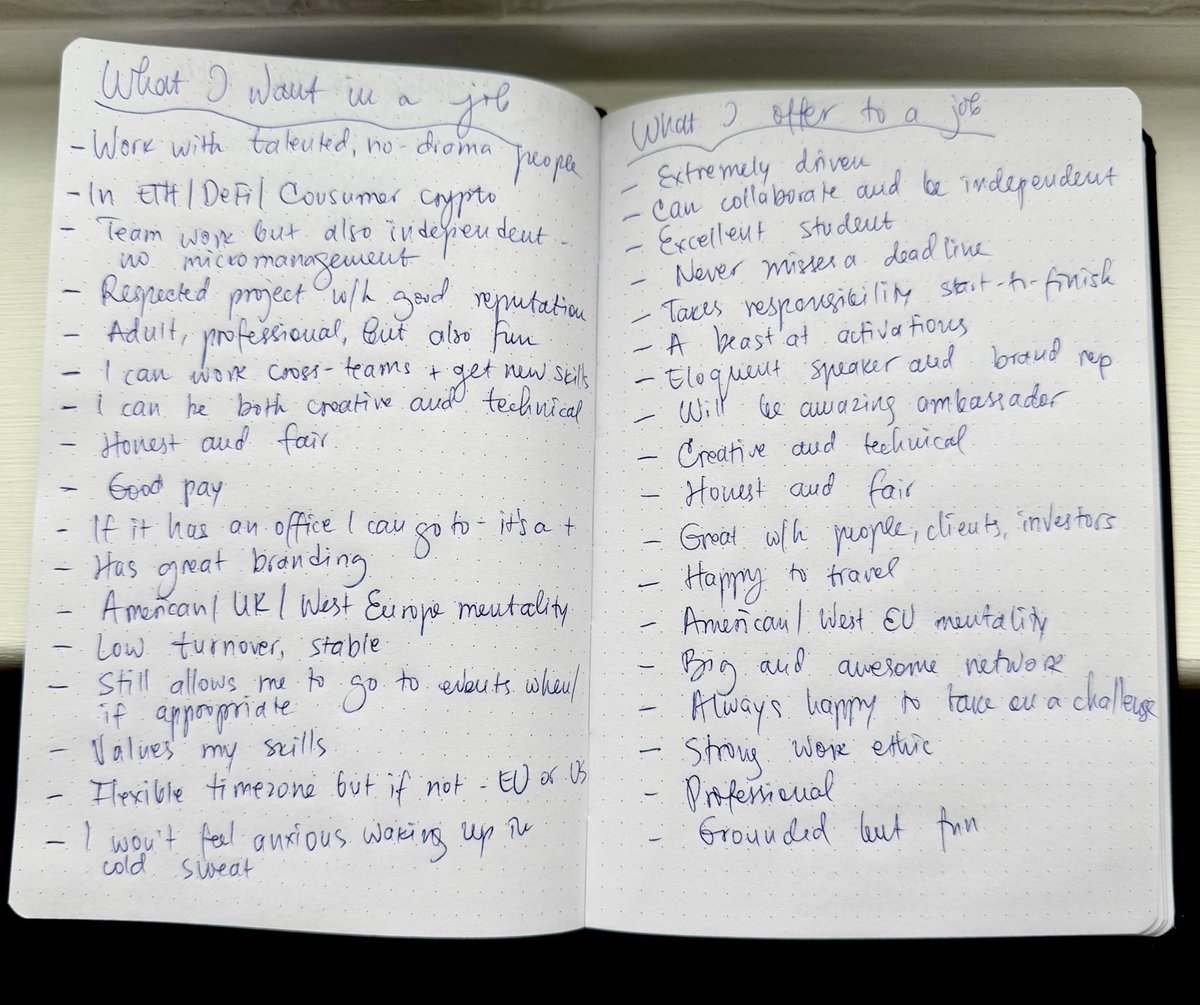 What I want in a job
- Work with talented, no-drama people
- In ETH/DeFi/Consumer crypto
- Team work but also independent -
no micromanagement
- Respected project w/h good reputation
- Adult, professional, but also fun
- I can work cross-teams + get new skills
- I can be both creative and technical
- Honest and fair
- Good pay
- If it has an office I can go to - it's a +
- Has great branding
- American/UK/West Europe mentality
- Low turnover, stable
- Still allows me to go to events when/
if appropriate
- Values my skills
- Flexible timezone but if not - EU or US
- I won't feel anxious waking up in
cold sweat
What I offer to a job
- Extremely driven
- Can collaborate and be independent
- Excellent student
- Never misses a deadline
- Takes responsibility start-to-finish
- A beast at activations
- Eloquent speaker and brand rep
- Will be amazing ambassador
- Creative and technical
- Honest and fair
- Great w/h people, clients, investors
- Happy to travel
- American/West EU mentality
- Big and awesome network
- Always happy to take on a challenge
- Strong work ethic
- Professional
- Grounded but fun